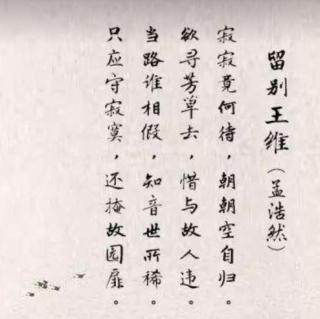 留别王维(孟浩然)
寂寂竟何待，朝朝空自归。
欲寻芳草去，惜与故人违。
当路谁相假，知音世所稀。
只应守寂寞，还掩故园扉。